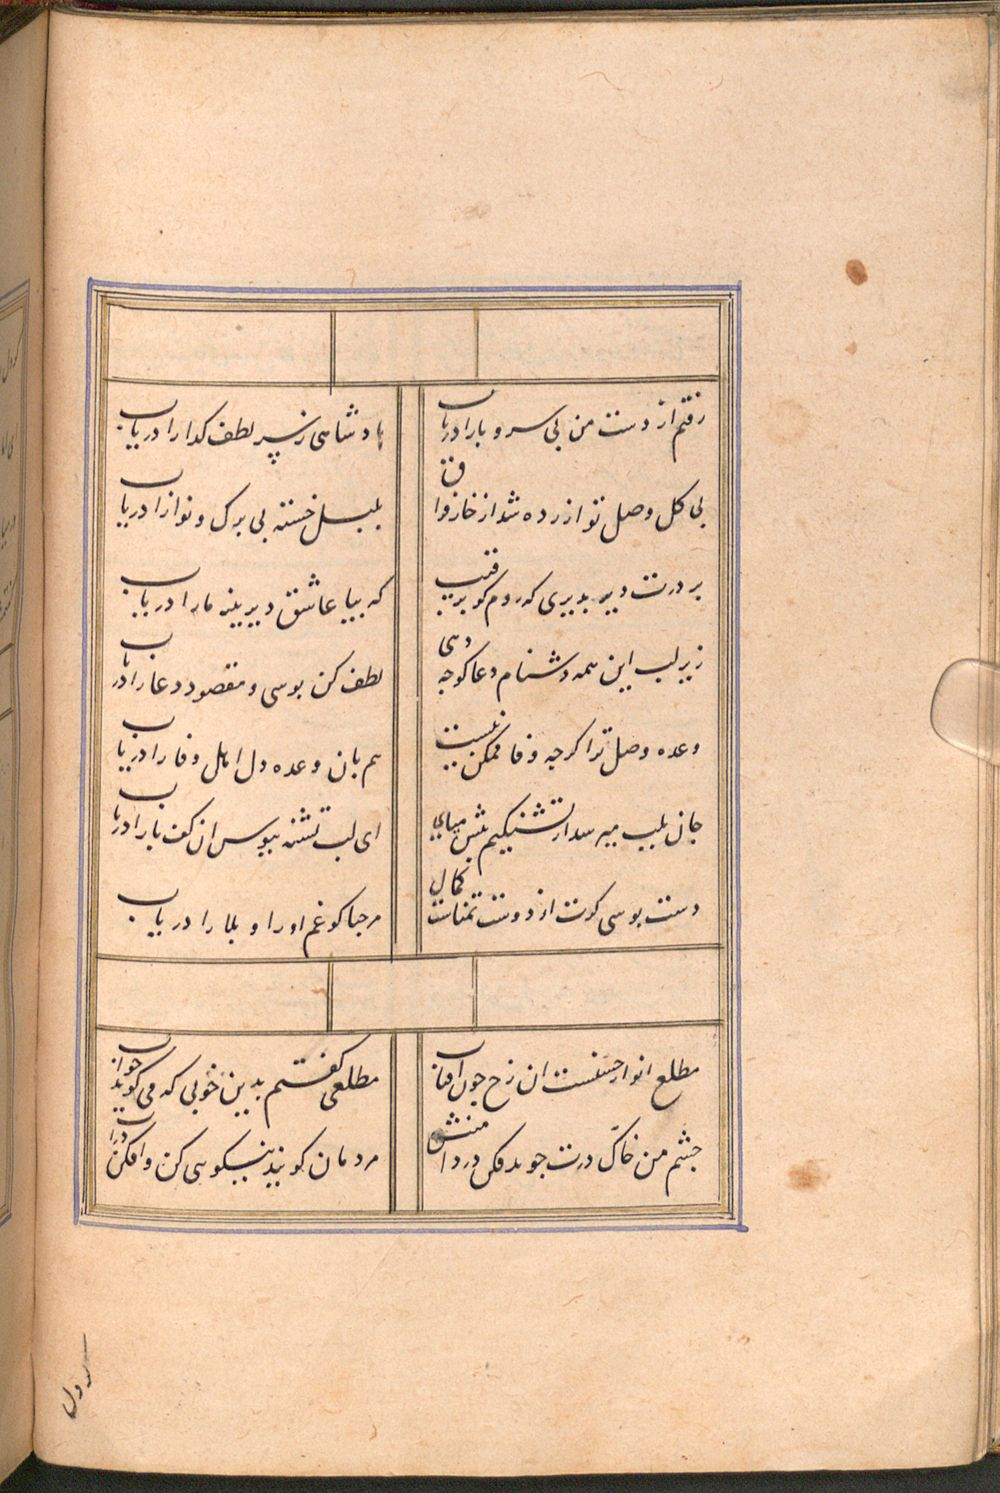 رفتم از دست من بی سر و پا را دریاب
پادشاهی ز سر لطف کدا را دریاب
بی کل وصل تو ازرده شد از خار فراق
بلبل خسته بی برک و نوا را دریاب
بر درت دیر بدیری که روم کو رقیب
که بیا عاشق دیرینه ما را دریاب
زیر لب این همه دشنام دعا کوجه دهی
لطف کن بوسی و مقصود دعا را دریاب
وعده وصل ترا کرجه وفا ممکن نیست
هم بان وعده دل اهل وفا را دریاب
جان بلب میرسد از تشنکیم
ای لب تشنه ببوس ان کف پا را دریاب
دست بوسی کرت از دوست تمناست کمال
مرحبا کو غم او را و بلا را دریاب
مطلع انوار حسنست ان رخ جون افتاب
مطلعی کفتم بدین خوبی که می کوید جواب
جشم من خاک درت جوید فکن در دامنش
مردمان کویند نیکویی کن و افکن دراب
کردل